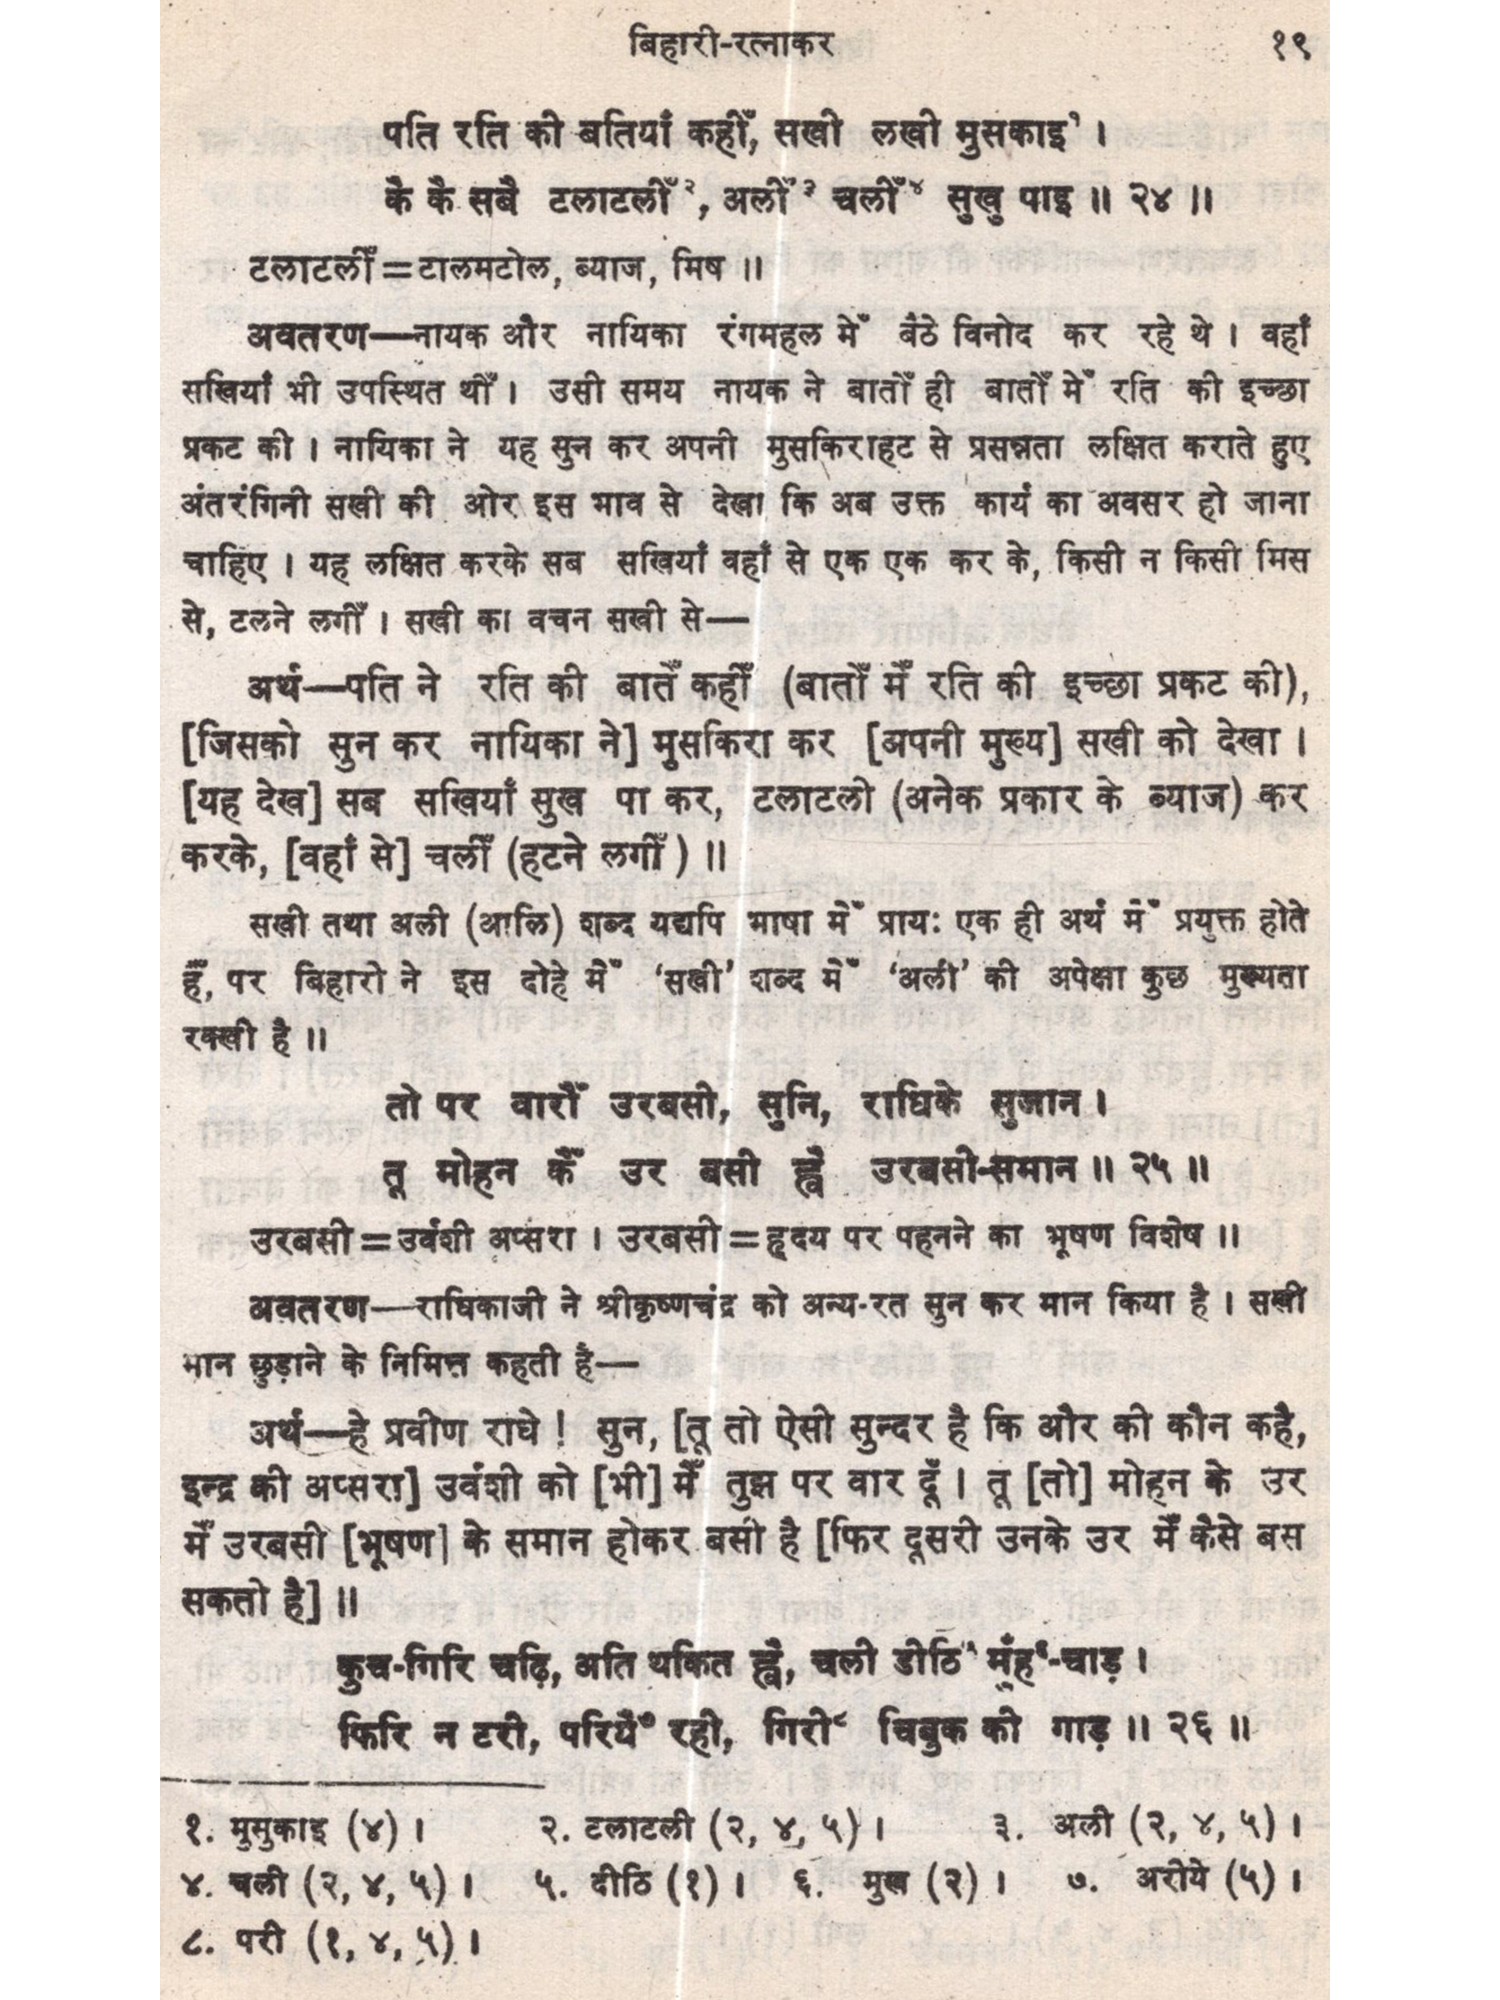 बिहारी-रत्नाकर १९
पति रति की बतियाँ कहीँ, सखी लखी मुसकाइ१ ।
कै कै सबै टलाटलीँ२, अलीँ३ चलीँ४ सुखु पाइ ॥ २४ ॥
टलाटलीँ=टालमटोल, ब्याज, मिष ॥
अवतरण—नायक और नायिका रंगमहल मेँ बैठे विनोद कर रहे थे । वहाँ
सखियाँ भी उपस्थित थीँ । उसी समय नायक ने बातोँ ही बातोँ मेँ रति की इच्छा
प्रकट की । नायिका ने यह सुन कर अपनी मुसकिराहट से प्रसन्नता लक्षित कराते हुए
अंतरंगिनी सखी की ओर इस भाव से देखा कि अब उक्त कार्य का अवसर हो जाना
चाहिए । यह लक्षित करके सब सखियाँ वहाँ से एक एक कर के, किसी न किसी मिस
से, टलने लगीँ । सखी का वचन सखी से—
अर्थ—पति ने रति की बातेँ कहीँ (बातोँ मेँ रति की इच्छा प्रकट की),
[जिसको सुन कर नायिका ने] मुसकिरा कर [अपनी मुख्य] सखी को देखा ।
[यह देख] सब सखियाँ सुख पा कर, टलाटली (अनेक प्रकार के ब्याज) कर
करके, [वहाँ से] चलीँ (हटने लगीँ) ॥
सखी तथा अली (आलि) शब्द यद्यपि भाषा मेँ प्रायः एक ही अर्थ मेँ प्रयुक्त होते
हैँ, पर बिहारी ने इस दोहे मेँ ‘सखी’ शब्द मेँ ‘अली’ की अपेक्षा कुछ मुख्यता
रक्खी है ॥
तो पर वारौँ उरबसी, सुनि, राधिके सुजान ।
तू मोहन कैँ उर बसी ह्वै उरबसी-समान ॥ २५ ॥
उरबसी=उर्वशी अप्सरा । उरबसी=हृदय पर पहनने का भूषण विशेष ॥
अवतरण—राधिकाजी ने श्रीकृष्णचंद्र को अन्य-रत सुन कर मान किया है । सखी
मान छुड़ाने के निमित्त कहती है—
अर्थ—हे प्रवीण राधे ! सुन, [तू तो ऐसी सुन्दर है कि और की कौन कहै,
इन्द्र की अप्सरा] उर्वशी को [भी] मैँ तुझ पर वार दूँ । तू [तो] मोहन के उर
मेँ उरबसी [भूषण] के समान होकर बसी है [फिर दूसरी उनके उर मेँ कैसे बस
सकती है] ॥
कुच-गिरि चढ़ि, अति थकित ह्वै, चली डीठि५ मुँह६-चाड़ ।
फिरि न टरी, परियै७ रही, गिरी८ चिबुक की गाड़ ॥ २६ ॥
१. मुसुकाइ (४) । २. टलाटली (२, ४, ५) । ३. अली (२, ४, ५) ।
४. चली (२, ४, ५) । ५. दीठि (१) । ६. मुख (२) । ७. अरीये (५) ।
८. परी (१, ४, ५) ।